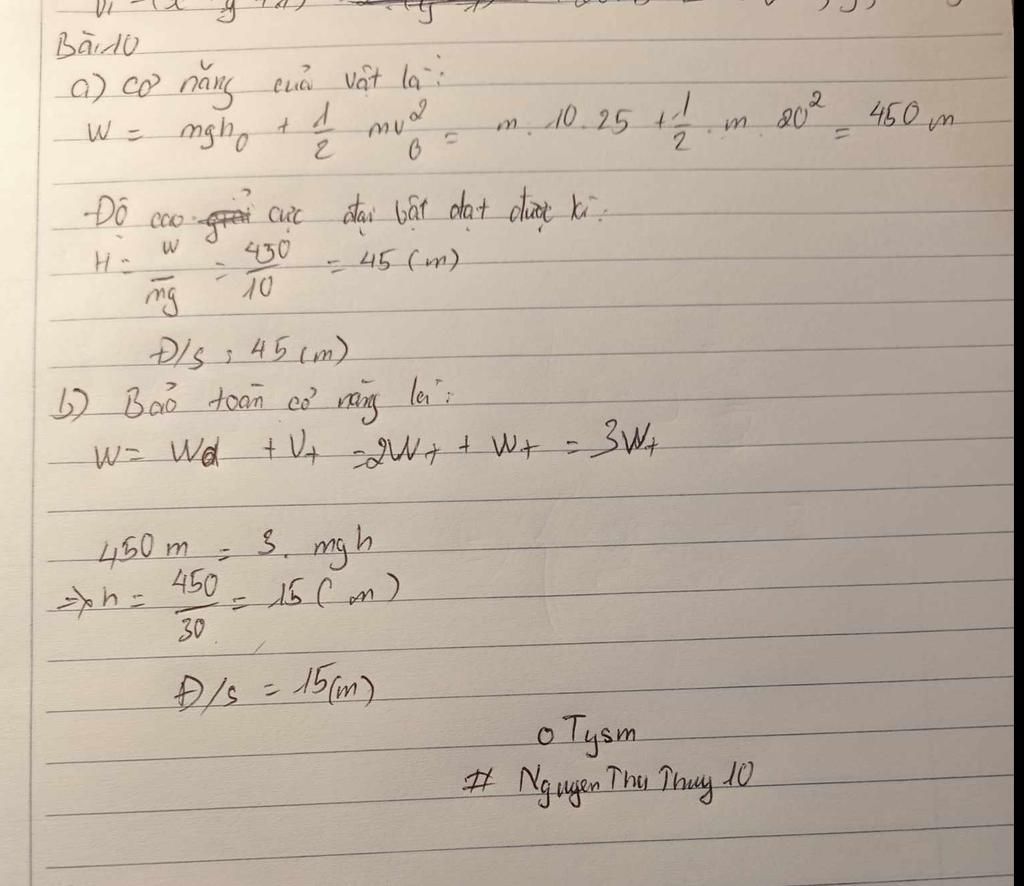 Bài 10
a) cơ năng của vật là:
W = mgh₀ + 1/2 mv₀² = m. 10. 25 + 1/2 . m 20² = 450 m
Độ cao cực đại vật đạt được là:
H = W/mg = 450/10 = 45 (m)
Đ/s : 45 (m)
b) Bảo toàn cơ năng là:
W = Wd + Vt = 2Wt + Wt = 3Wt
450 m = 3. mgh
=> h = 450/30 = 15 (m)
Đ/s = 15(m)
o Tysm
# Nguyen Thu Thuy 10